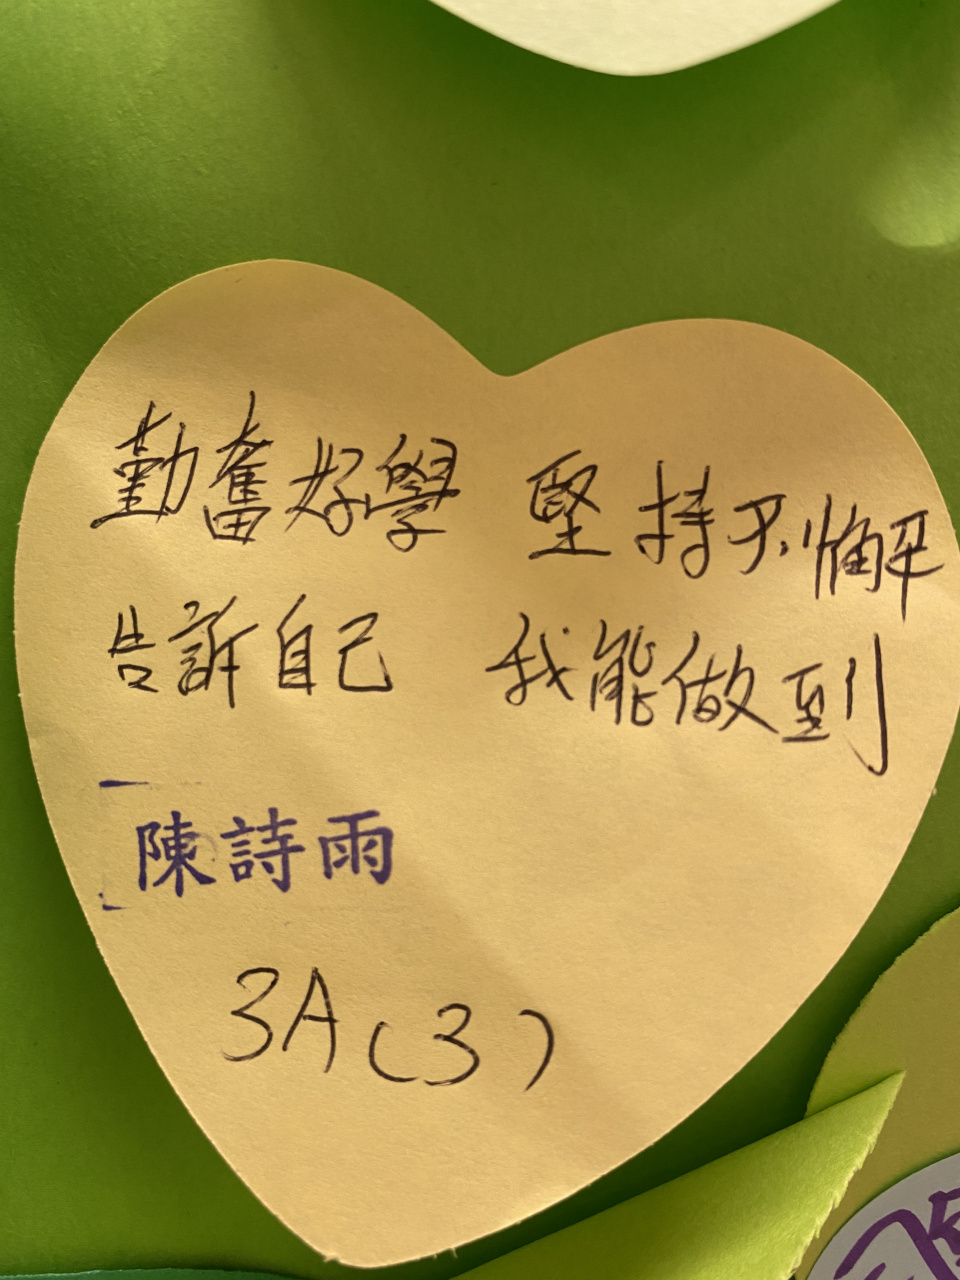 勤奮好學 堅持不懈
告訴自己 我能做到
陳詩雨
3A(3)